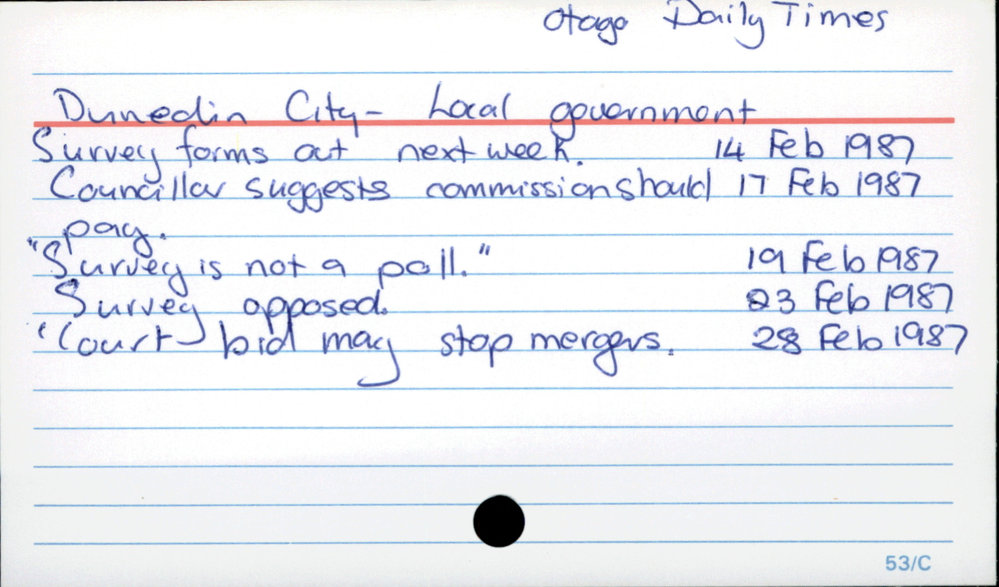 Otago Daily Times
Dunedin City - Local government
Survey forms out next week. 14 Feb 1987
Councillor suggests commission should 17 Feb 1987
pay.
"Survey is not a poll." 19 Feb 1987
Survey opposed. 23 Feb 1987
'Court bid may stop mergers. 28 Feb 1987
53/C